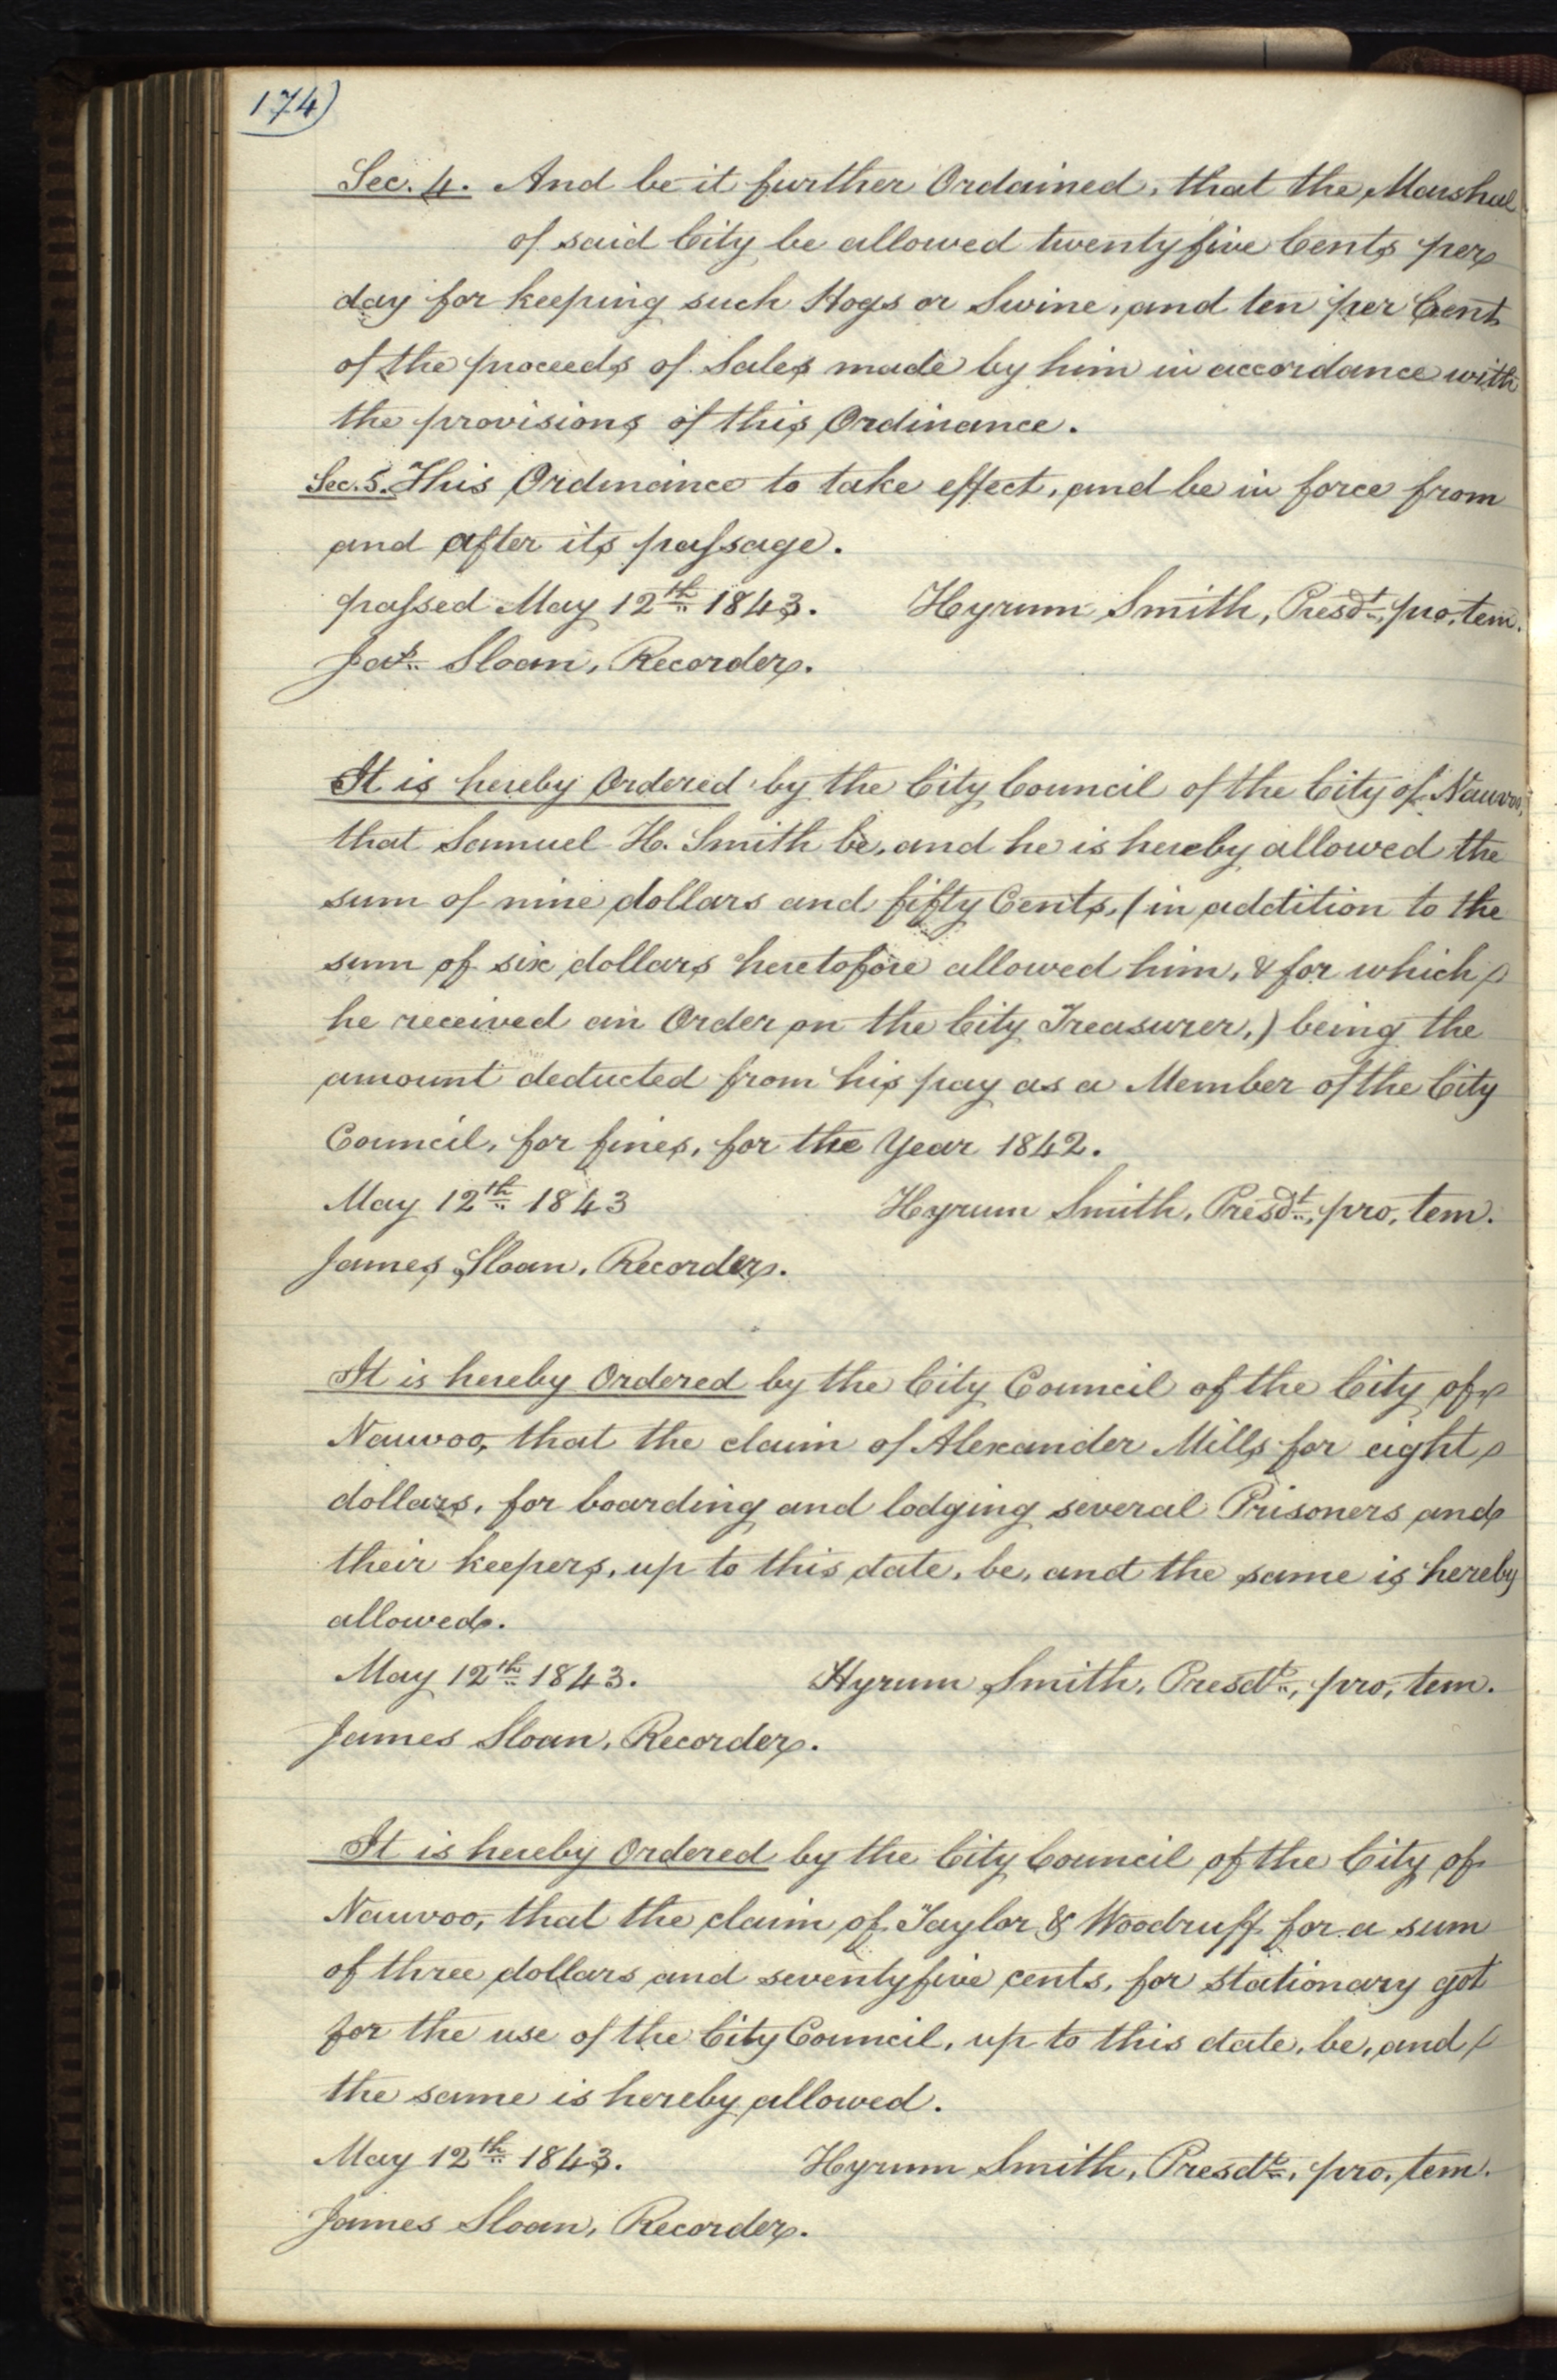 174)
Sec. 4. And be it further Ordained, that the Marshal
of said City be allowed twentyfive Cents per
day for keeping such Hogs or Swine, and ten per Cent
of the proceeds of Sales made by him in accordance with
the provisions of this Ordinance.
Sec. 5. This Ordinance to take effect, and be in force from
and after its passage.
passed May 12th 1843. Hyrum Smith, Presdt., pro, tem.
Jas. Sloan, Recorder.
It is hereby Ordered by the City Council of the City of Nauvoo,
that Samuel H. Smith be, and he is hereby allowed the
sum of nine dollars and fifty Cents, (in addition to the
sum of six dollars heretofore allowed him, & for which
he received an Order on the City Treasurer,) being the
amount deducted from his pay as a Member of the City
Council, for fines, for the Year 1842.
May 12th 1843 Hyrum Smith, Presdt., pro, tem.
James Sloan, Recorder.
It is hereby Ordered by the City Council of the City of
Nauvoo, that the claim of Alexander Mills for eight
dollars, for boarding and lodging several Prisoners and
their keepers, up to this date, be, and the same is hereby
allowed.
May 12th 1843. Hyrum Smith, Presdt., pro, tem.
James Sloan, Recorder.
It is hereby Ordered by the City Council of the City of
Nauvoo, that the claim of Taylor & Woodruff for a sum
of three dollars and seventyfive cents, for stationary got
for the use of the City Council, up to this date, be, and
the same is hereby allowed.
May 12th 1843. Hyrum Smith, Presdt., pro, tem.
James Sloan, Recorder.